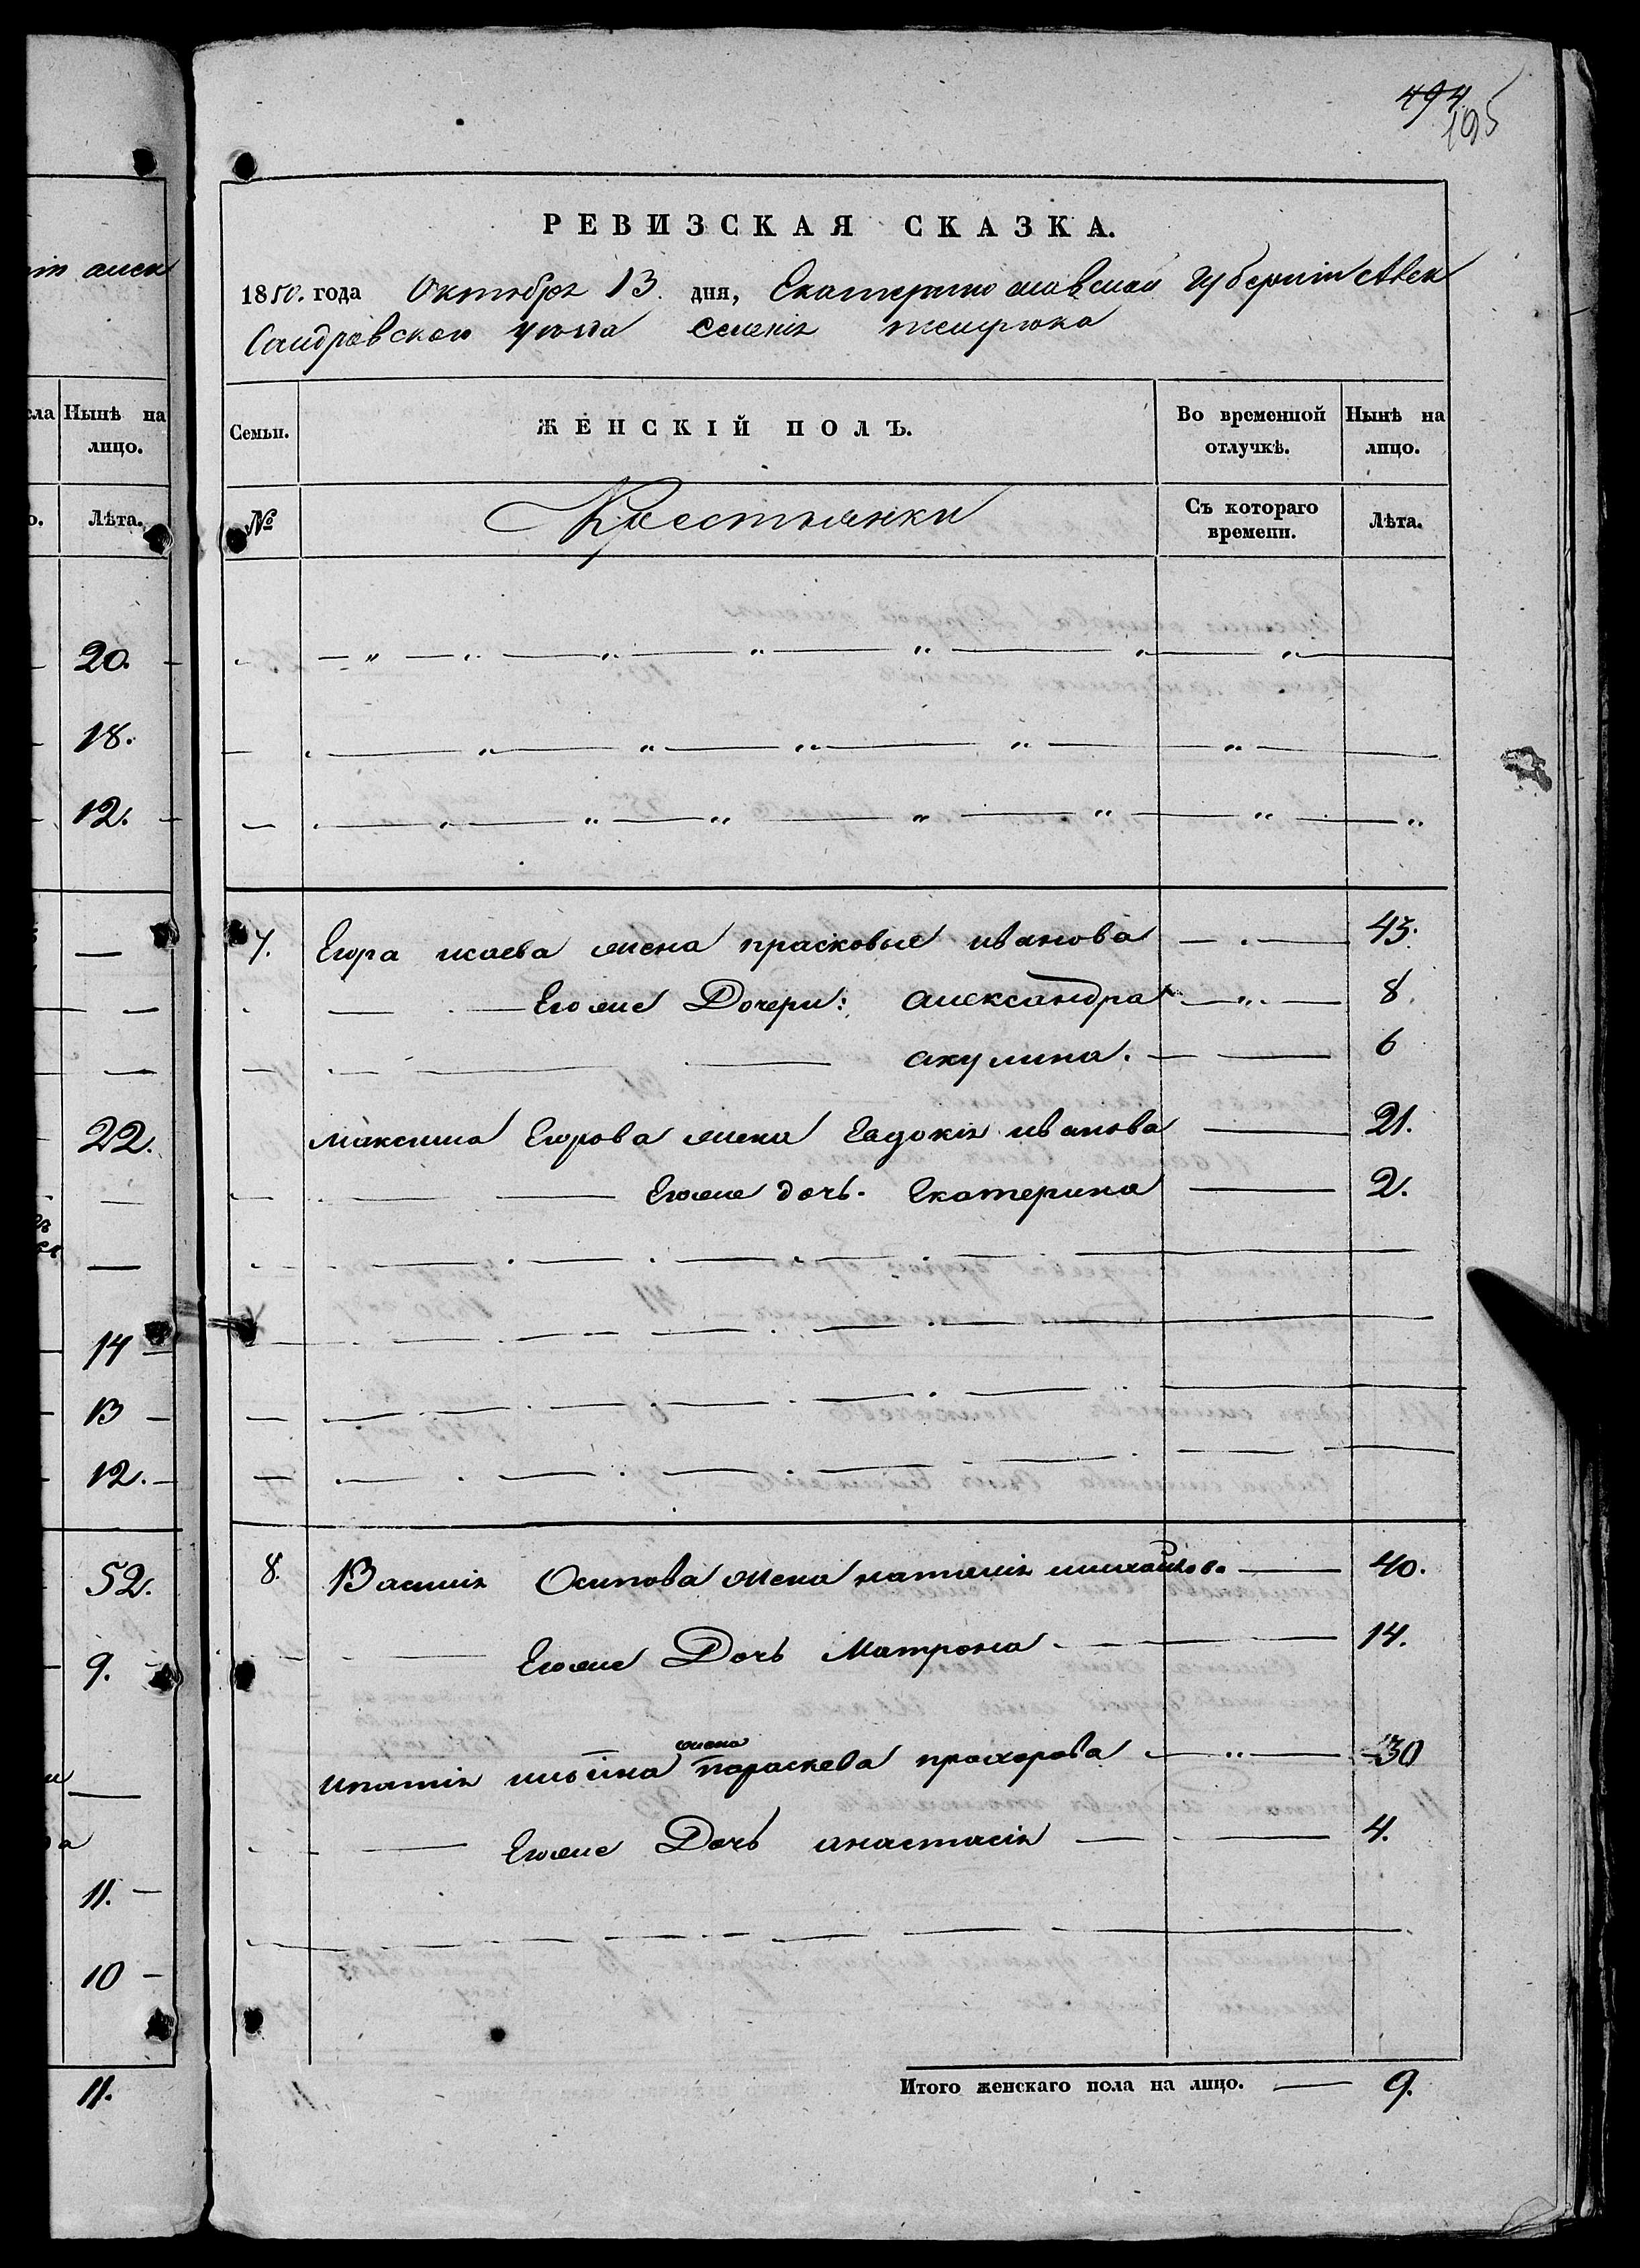 494
195
ит алек
РЕВИЗСКАЯ СКАЗКА.
1850. года Октября 13. дня, Екатеринославской Губернии Алек
сандровского уезда Селения темрюка
ла Нынѣ на лицо.
Семьи. ЖЕНСКІЙ ПОЛЪ. Во временной отлучкѣ. Нынѣ на лицо.
Лѣта.
№ Крестьянки Съ котораго времени. Лѣта.
20.
18.
12.
7. Егора исаева жена прасковье иванова 45.
Егоже Дочери: александра 8.
акулина. 6
22.
максима Егорова жена Евдокия иванова 21.
Егоже дочь. Екатерина 2.
14
13
12.
52.
8. Василия Осипова жена наталия михайлов. 40.
9.
Егоже Дочь Матрона 14.
жена
ипатия ильина параскева прохорова 30
Егоже Дочь анастасия 4.
11.
10
11.
Итого женскаго пола на лицо. 9.